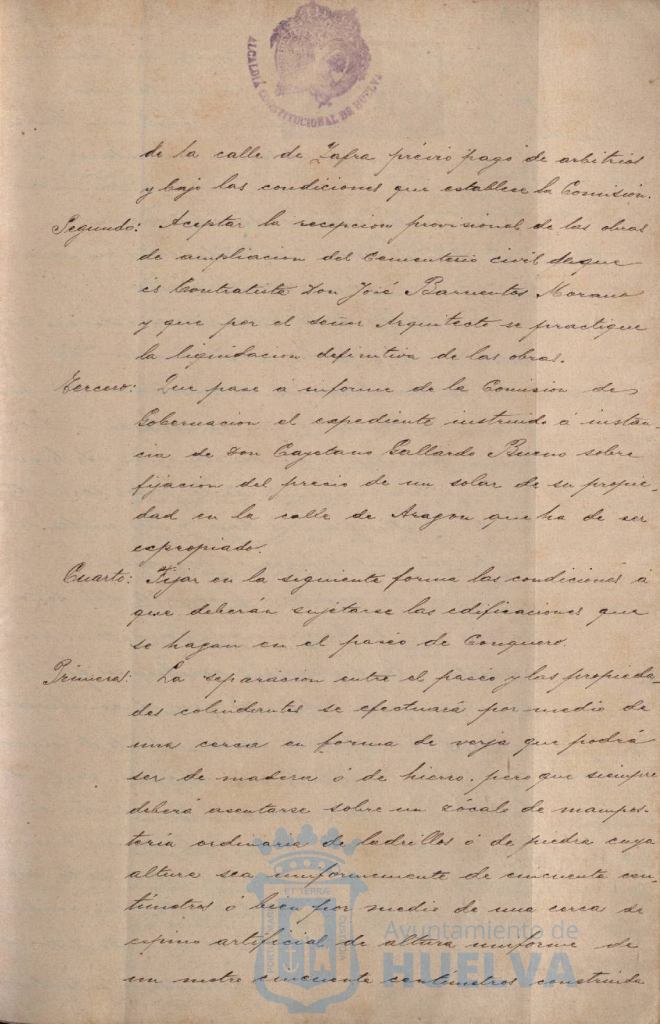 ALCALDÍA CONSTITUCIONAL DE HUELVA
de la calle de Zafra prévio pago de arbitrios
y bajo las condiciones que establece la Comisión.
Segundo: Aceptar la recepcion provisional de las obras
de ampliacion del Cementerio civil de que
es Contratista Don José Barrientos Morano
y que por el señor Arquitecto se practique
la liquidacion definitiva de las obras.
Tercero: Que pase á informe de la Comision de
Gobernacion el expediente instruido á instan-
cia de Don Cayetano Gallardo Bueno sobre
fijacion del precio de un solar de su propie-
dad en la calle de Aragon que ha de ser
expropiado.
Cuarto: Fijar en la siguiente forma las condiciones á
que deberán sujetarse las edificaciones que
se hagan en el paseo de Conquero.
Primera: La separacion entre el paseo y las propieda-
des colindantes se efectuará por medio de
una cerca en forma de verja que podrá
ser de madera ó de hierro, pero que siempre
deberá asentarse sobre un zócalo de mampos-
tería ordinaria de ladrillos ó de piedra cuya
altura sea uniformemente de cincuenta cen-
tímetros ó bien por medio de una cerca de
espino artificial de altura uniforme de
un metro cincuenta centímetros construida
Ayuntamiento de
HUELVA